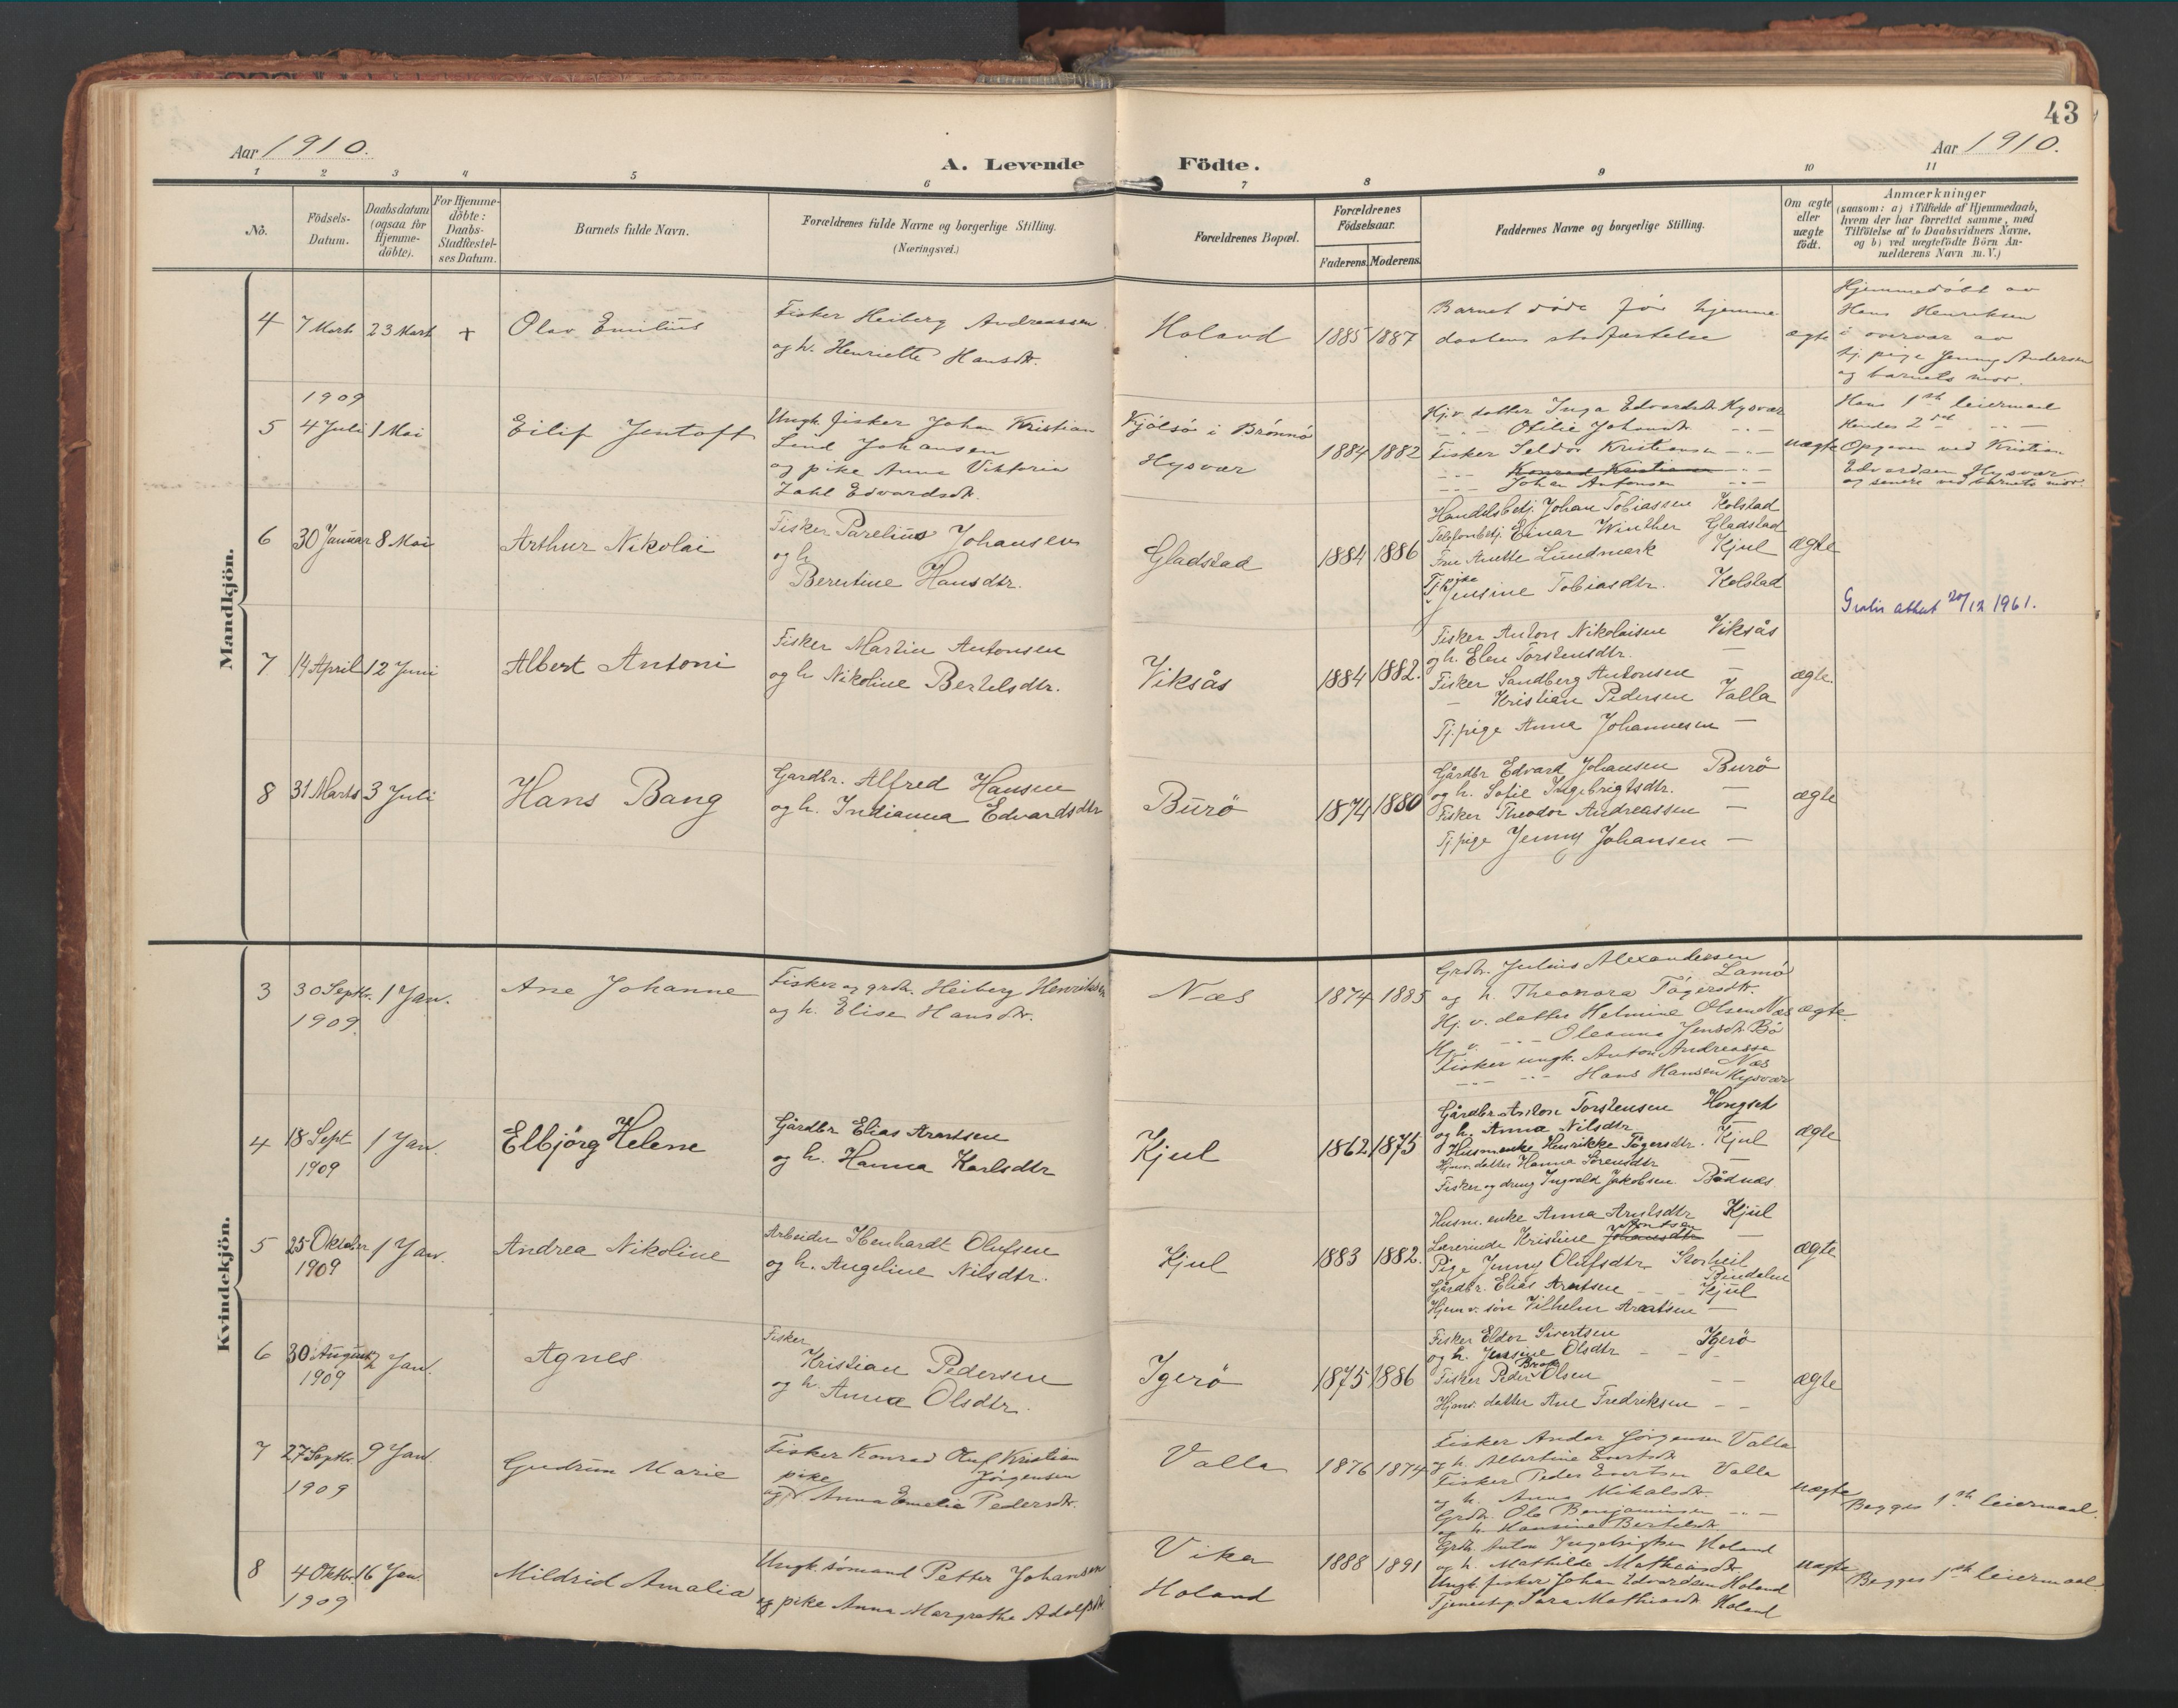 43
Aar 1910.
Aar 1910.
A. Levende Födte.
1 2 3 4 5 6 7 8 9 10 11
No.
Födsels-
Datum.
Daabsdatum
(ogsaa for
Hjemme-
döbte).
For Hjemme-
döbte:
Daabs-
Stadfæstel-
ses Datum.
Barnets fulde Navn.
Forældrenes fulde Navne og borgerlige Stilling.
(Næringsvei.)
Forældrenes Bopæl.
Forældrenes
Födselsaar.
Faderens. Moderens.
Faddernes Navne og borgerlige Stilling.
Om ægte
eller
uægte
födt.
Anmærkninger
(saasom: a) i Tilfælde af Hjemmedaab,
hvem der har forrettet samme, med
Tilföielse af to Daabsvidners Navne,
og b) ved uægtefödte Börn An-
melderens Navn m. V.)
Mandkjön.
4 7 Marts 23 Mart + Olav Emilius
Fisker Heiberg Andreassen
og h. Henriette Hansdtr.
Holand 1885 1887
Barnet döde för hjemme
daabens stadfæstelse
ægte
Hjemmedöbt av
Hans Henriksen
i overvær av
tj. pige Jenny Andersen
og barnets mor.
1909
5 4 Juli 1 Mai Eilif Jentoft
Ungk. fisker Johan Kristian
Lind Johansen
og pike Anna Viktoria
Zahl Edvardsdtr.
Kjölsö i Brönnö
Hysvær
1884 1882
Hj.v. datter Inga Edvardsdtr. Hysvær
- - Otilie Johansdtr. - -
Fisker Seldor Kristiansen - -
- - Konrad Kristiansen - -
- - Johan Antonsen - -
uægte
Hans 1ste leiermaal
Hendes 2det - -
Opgaven ved Kristian
Edvardsen Hysvær
og senere ved barnets mor.
6 30 Januar 8 Mai Arthur Nikolai
Fisker Parelius Johansen
og h.
Berentine Hansdtr.
Gladstad 1884 1886
Handelsbetj. Johan Tobiassen Kolstad
Telefonbetj. Einar Winther Gladstad
Fru Anette Lundmark Kjul
Tj. pige Jensine Tobiasdtr. Kolstad
ægte
Gratis attest 20/12 1961.
7 14 April 12 Juni Albert Antoni
Fisker Martin Antonsen
og h Nikoline Bertelsdtr.
Viksås 1884 1882.
Fisker Anton Nikolaisen Viksås
og h. Elen Torstensdtr. —
Fisker Sandberg Antonsen —
- Kristian Pedersen Valla
Tj. pige Anna Johannesen —
ægte.
8 31 Marts 3 Juli Hans Bang
Gardbr. Alfred Hansen
og h. Indianna Edvardsdtr
Burö 1874 1880
Gårdbr Edvard Johansen Burö
og h. Sofie Ingebrigtsdtr. —
Fisker Theodor Andreassen —
Tj. pige Jenny Johansen —
ægte
Kvindekjön.
3 30 Septbr. 1 Jan. Ane Johanne
1909
Fisker og grdbr. Heiberg Henriksen
og h. Elise Hansdtr.
Næs 1874 1885
Grdbr. Julius Alexandersen
Lamö
og h. Theonora Tögersdtr.
Hj. v. datter Helmine Olsen Næs
Hj. v. - - Oleanna Jensdtr. Bö
Fisker ungk. Anton Andreassen
Næs
- - - - Hans Hansen Hysvær
ægte.
4 18 Sept 1 Jan. Elbjörg Helene
1909
Gårdbr Elias Arentsen
og h. Hanna Karlsdtr
Kjul 1862 1875
Gårdbr. Anton Torstensen Hongset
og h. Anna Nilsdtr —
Husm.enke Henrikke Tögersdtr. Kjul
Hjv. datter Hanna Sörensdtr —
Fisker og dreng Ingvald Jakobsen Bådnæs
ægte
5 25 Oktober 1 Jan. Andrea Nikoline
1909
Arbeider Ibenhardt Olufsen
og h. Angeline Nilsdtr.
Kjul 1883 1882.
Husm. enke Anna Arntsdtr Kjul
Lærerinde Kristine Johansdtr Arntsen —
Pige Jenny Olufsdtr. Storheil
Bindalen
Gårdbr. Elias Arentsen - - Kjul
Hjemv. sön Vilhelm Arentsen —
ægte
6 30 August 2 Jan. Agnes
1909
Fisker
Kristian Pedersen
og h. Anna Olsdtr.
Igerö 1875 1886
Fisker Eldor Sivertsen Igerö
og h. Jensine Olsdtr - -
Fisker Peder Olsen - -
Hjmv. datter Ane Fredriksen - -
ægte
7 27 Septbr. 9 Jan. Gudrun Marie
1909
Fisker Konrad Oluf Kristian
Jörgensen
og pike Anna Emelie Pedersdtr.
Valla 1876 1874
Fisker Andor Jörgensen Valla
og h. Albertine Evertsdtr.
Fisker Peder Evertsen Valla
og h. Anna Nikolsdtr.
Grdbr. Ole Benjaminsen - -
og h. Hansine Bertelsdtr.
uægte
Begges 1ste leiermaal.
8 4 Oktbr. 16 Jan Mildrid Amalia
1909
Ungk. sömand Petter Johansen
og pike Anna Margrethe Adolfsdtr.
Vika
Holand
1888 1891
Grdbr. Anton Ingebrigtsen Holand
og h. Mathilde Mathiasdtr.
Ungk. fisker Johan Edvardsen Holand
Tjenestep. Sara Mathiasdtr. Holand
uægte
Begges 1ste leiermaal.